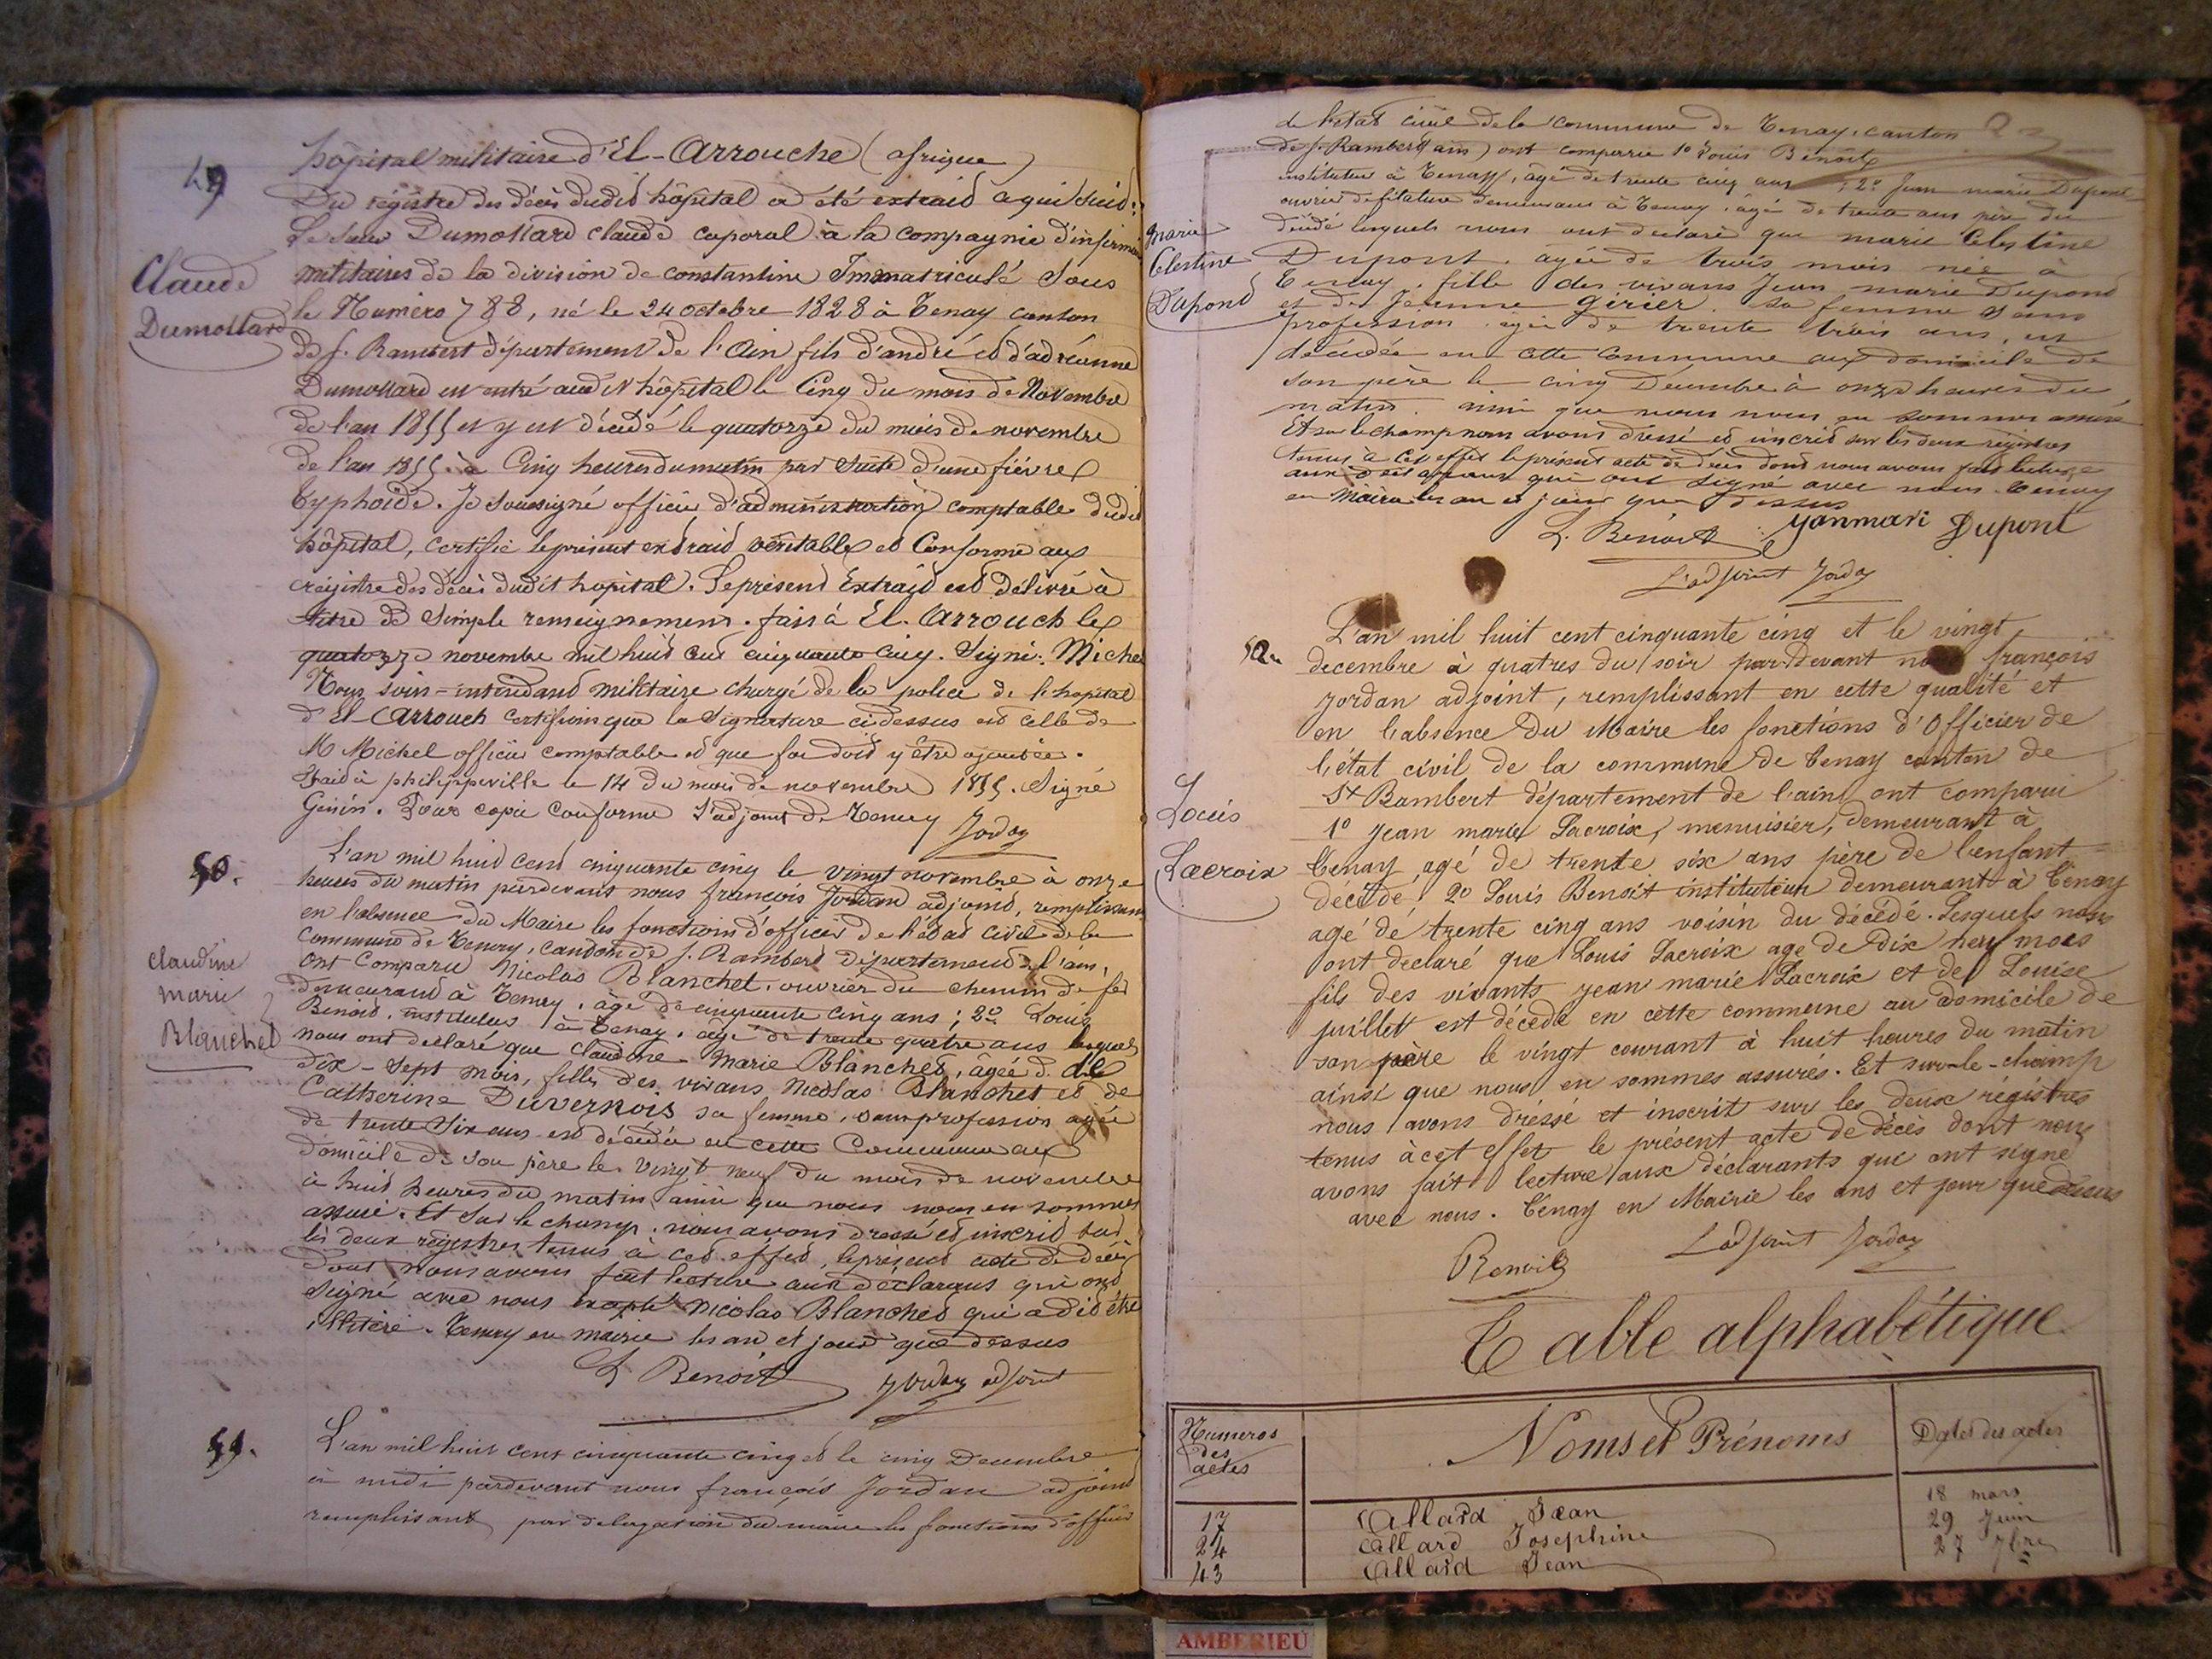 49
hôpital militaire d'El-Arrouche (afrique)
Du régistre des décès dudit hôpital a été extrait ce qui suit:
Le sieur Dumollard claude caporal à la compagnie d'infirmiers
Claude
Dumollard
militaires de la division de constantine Immatriculé sous
le Numéro 788, né le 24 octobre 1828 à Tenay canton
de S. Rambert département de l'Ain fils d'andré et d'adréanne
Dumollard est entré audit hôpital le Cinq du mois de Novembre
de l'an 1855 et y est décédé le quatorze du mois de novembre
de l'an 1855 à Cinq heures du matin par suite d'une fiévre
typhoïde. Je soussigné officier d'administration comptable dudit
hôpital, certifie le présent extrait véritable et Conforme aux
régistre des décès dudit hopital. Le présent Extrait est délivré à
titre de Simple renseignement. fait à El-Arrouch le
quatorze novembre mil huit cent cinquante cinq. Signé: Michel
Nous sous-intendant militaire chargé de la police de l'hopital
d'El-Arrouch certifions que la Signature ci dessus est celle de
M Michel officier comptable et que foi doit y être ajoutée.
Fait à philippeville le 14 du mois de novembre 1855. Signé
Genin. Pour copie conforme L'adjoint de Tenay
Jordan
50.
L'an mil huit cent cinquante cinq le vingt novembre à onze
heures du matin pardevant nous françois Jordan adjoint, remplissant
en l'absence du Maire les fonctions d'officier de l'état civil de la
commune de Tenay, canton de S. Rambert département de l'ain,
claudine
marie
Blanchet
ont comparu Nicolas Blanchet, ouvrier du chemin de fer
demeurant à Tenay, âgé de cinquante cinq ans; 2º Louis
Benoit, instituteur à Tenay, agé de trente quatre ans lesquels
nous ont déclaré que claudine-Marie Blanchet, âgée de
dix-sept mois, fille des vivans Nicolas Blanchet et de
Catherine Duvernois sa femme, sans profession agée
de trente six ans est décédée en cette Commune au
domicile de son père le vingt neuf du mois de novembre
à huit heures du matin ainsi que nous nous en sommes
assuré. Et sur le champ nous avons dressé et inscrit sur
les deux régistres tenus à cet effet, le présent acte de décès
dont nous avons fait lecture aux déclarans qui ont
signé avec nous excepté Nicolas Blanchet qui a dit être
illitéré. Tenay en mairie les an et jour que dessus
L Benoit Jordan adjoint
51.
L'an mil huit cent cinquante cinq et le cinq Decembre
à midi pardevant nous françois Jordan adjoint
remplissant par délégation du maire les fonctions d'officier
de l'état civil de la commune de Tenay, canton
de S. Rambert (ain) ont comparu 1º Louis Benoit
instituteur à Tenay, agé de trente cinq ans; 2º Jean marie Dupont
ouvrier de filature demeurant à Tenay, âgé de trente ans père du
décédé lesquels nous ont declaré que marie Célestine
marie
Celestine
Dupond
Dupont, agée de trois mois née à
Tenay, fille des vivans Jean marie Dupond
et de Jeanne Girier sa femme sans
profession, agée de trente trois ans, est
décédée en cette commune aux domicile de
son père le cinq Décembre à onze heures du
matin ainsi que nous nous en sommes assuré
Et sur le champ nous avons dressé et inscrit sur les deux régistres
tenus à cet effet le présent acte de décès dont nous avons fait lecture
qui ont signé avec nous. Tenay
en Mairie les an et jour que dessus
L. Benoit Yanmari Dupont
L'adjoint Jordan
52.
L'an mil huit cent cinquante cinq et le vingt
decembre à quatres du soir par devant françois
Jordan adjoint, remplissant en cette qualité et
en l'absence du Maire les fonctions d'Officier de
l'état civil de la commune de Tenay canton de
St Rambert département de l'ain, ont comparu
Louis
Lacroix
1º Jean marie Lacroix, menuisier, demeurant à
Tenay, agé de trente six ans père de l'enfant
décédé 2º Louis Benoit instituteur demeurant à Tenay
agé de trente cinq ans voisin du décédé. Lesquels nous
ont declaré que Louis Lacroix agé de dix neuf mois
fils des vivants Jean marie Lacroix et de Louise
juillet est décédé en cette commune au domicile de
son père le vingt courant à huit heures du matin
ainsi que nous en sommes assurés. Et sur-le-champ
nous avons dréssé et inscrit sur les deux régistres
tenus à cet effet le présent acte de décès dont nous
avons fait lecture aux déclarants qui ont signé
avec nous. Tenay en Mairie les ans et jour que dessus
Benoit L'adjoint Jordan
Table alphabétique
Numeros des actes Noms et Prénoms Dates des actes
17 Allard Jean 18 mars
24 Allard Josephine 29 Juin
43 Allard Jean 27 7bre
AMBERIEU